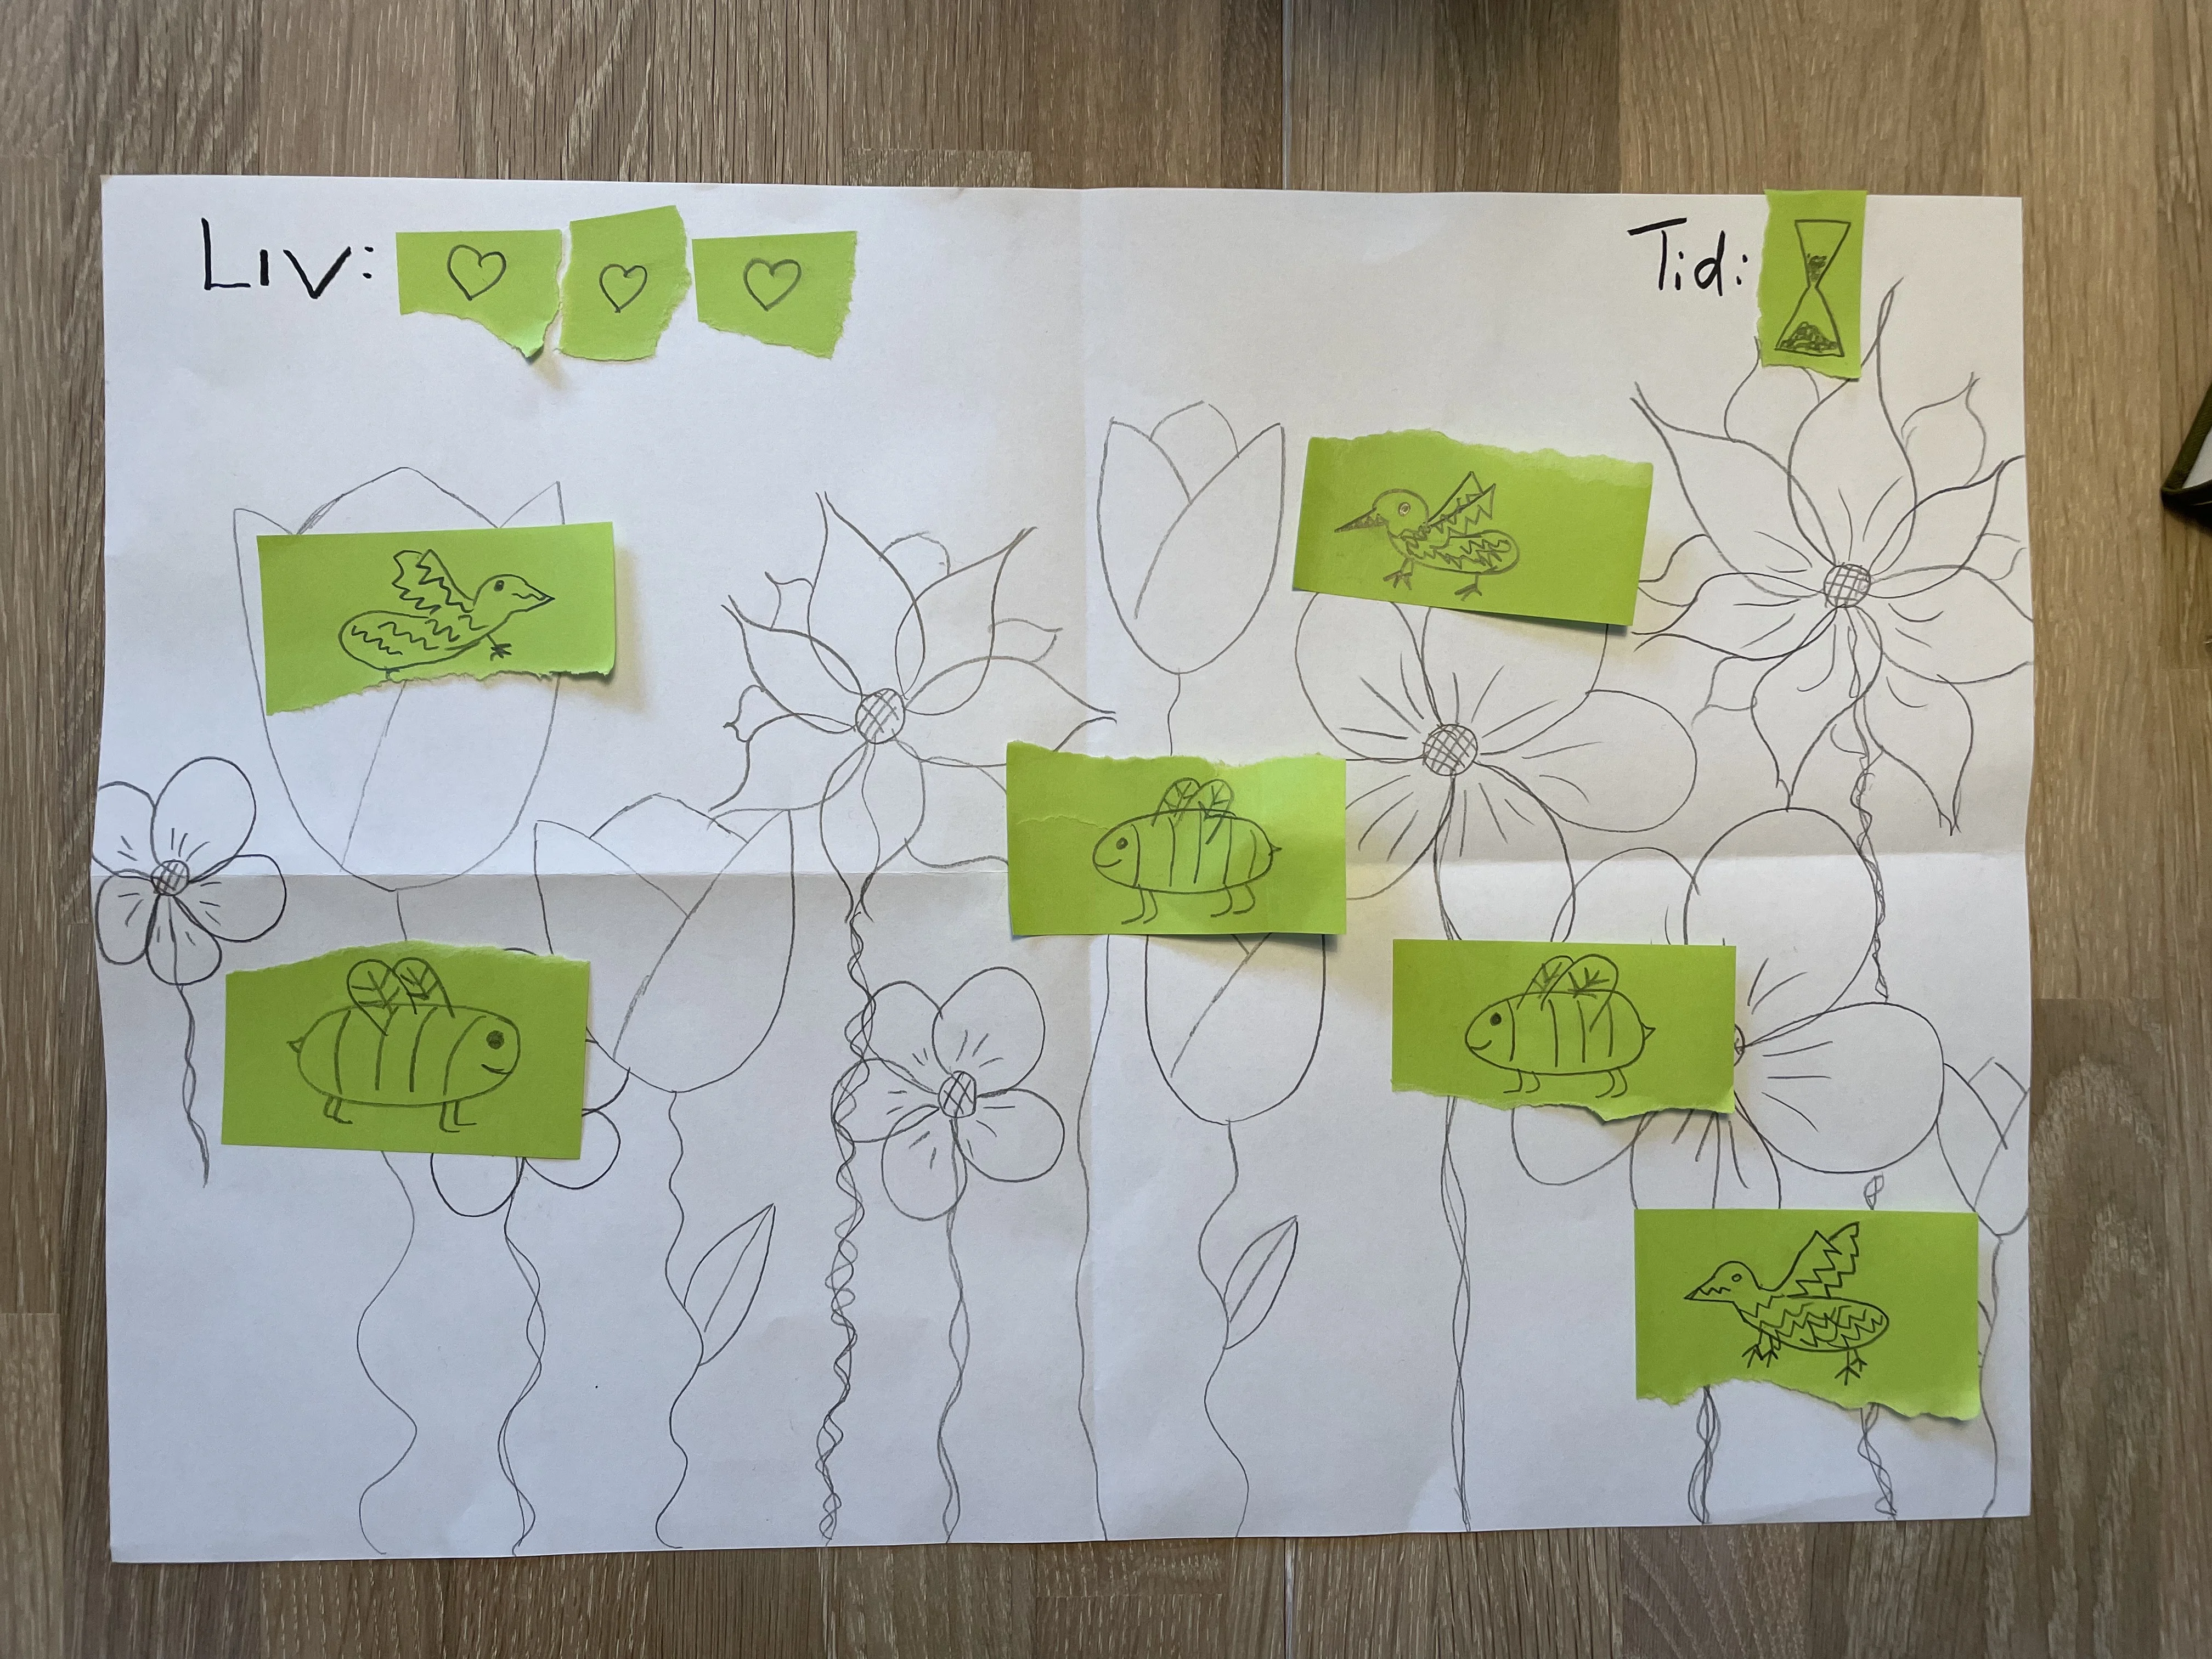 Liv:
Tid: